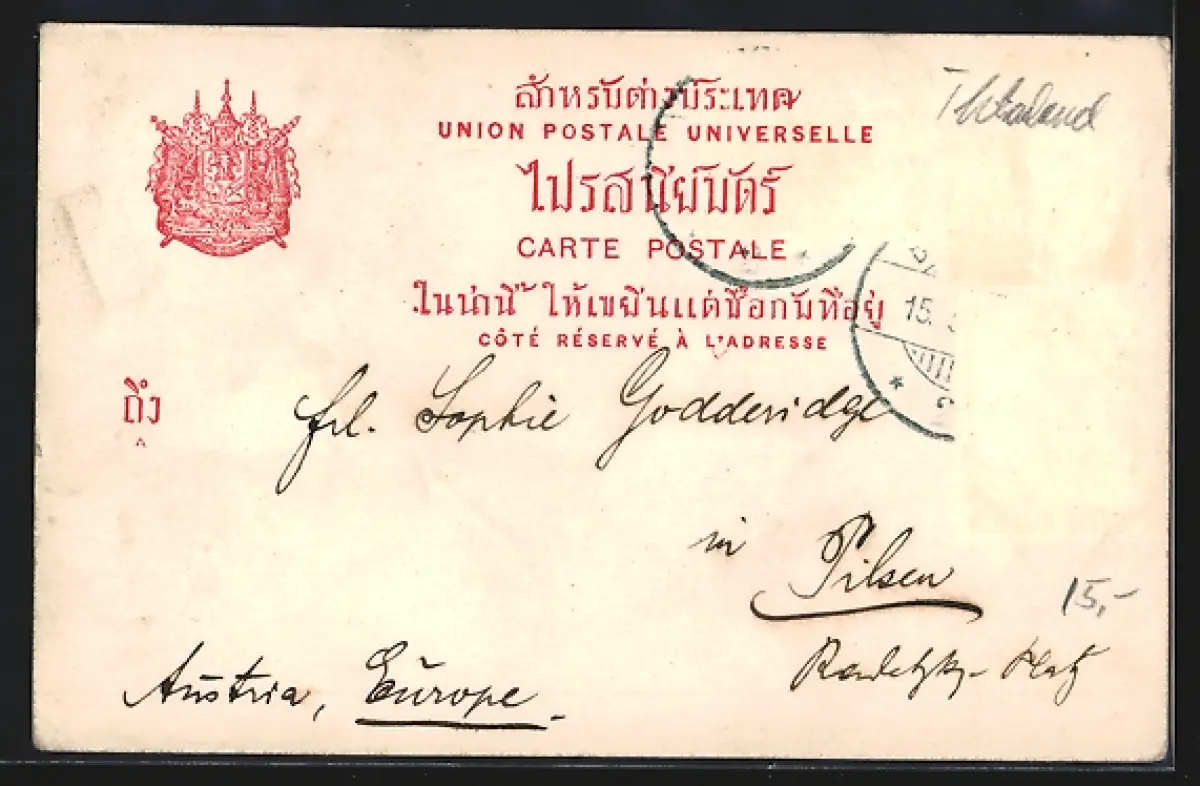 สำหรับต่างประเทศ
UNION POSTALE UNIVERSELLE
ไปรสนีย์บัตร์
CARTE POSTALE
ในน่านี้ ให้เขียนแต่ชื่อกับที่อยู่
CÔTÉ RÉSERVÉ À L'ADRESSE
ถึง
15.
Frl. Sophie Godderidge
in Pilsen
15,-
Radetzky-Platz
Austria, Europe.